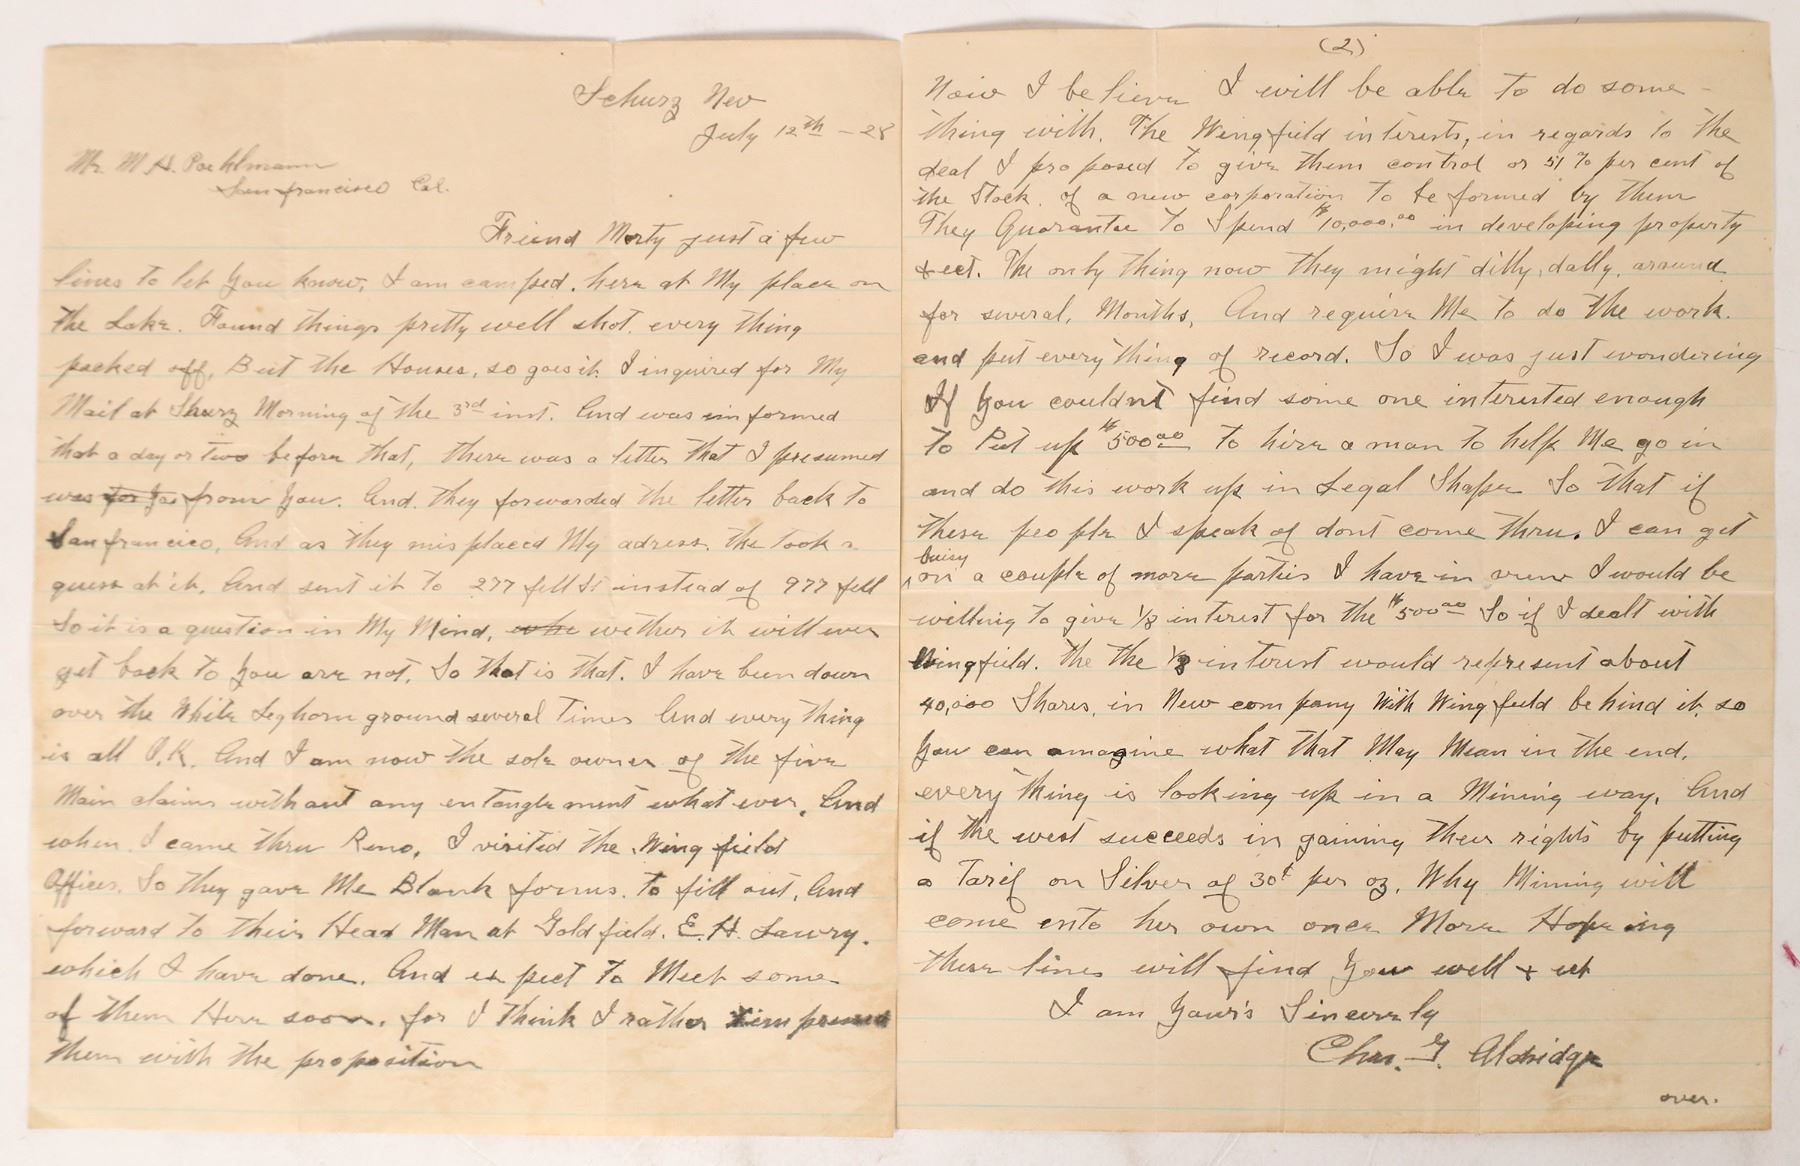 Schurz Nev
July 12th - 28
Mr. M H. Poehlmann
San francisco Cal.
Friend Morty just a few
lines to let you know, I am camped, here at My place on
the Lake. Found things pretty well shot. every thing
packed off, But the Houses, so goes it. I inquired for My
Mail at Shurz Morning of the 3rd inst. And was informed
that a day or two before that, there was a letter that I presumed
was for you from you. And they forwarded the letter back to
San francico, And as they misplaced My adress, the took a
guess at it. And sent it to 277 fell St instead of 977 fell
So it is a question in My Mind, whe wether it will ever
get back to you are not. So that is that. I have been down
over the White Leghorn ground several Times And every thing
is all O.K. And I am now the sole owner of the five
Main claims without any entanglement what ever. And
when I came thru Reno, I visited the Wing field
Offices. So they gave Me Blank forms. to fill out. And
forward to their Head Man at Goldfield. E. H. Lawry.
which I have done. And expect to Meet some
of them Here soon. for I think I rather impressed
them with the proposition
(2)
Now I believe I will be able to do some -
thing with. The Wingfield interests, in regards to the
deal I proposed to give them control or 51 % per cent of
the Stock. of a new corporation to be formed by them
They Guarantee to Spend $10,000.00 in developing property
+ ect. The only thing now they might dilly, dally, around
for several, Months, And require Me to do the work.
and put every thing of record. So I was just wondering
If you couldnt find some one interested enough
to Put up $500 00 to hire a man to help Me go in
and do this work up in Legal Shape So that if
these people I speak of dont come thru. I can get
buisy
on a couple of more parties I have in view I would be
willing to give 1/8 interest for the $500 00 So if I dealt with
Wingfield. The the 1/8 interest would represent about
40,000 Shares, in New company With Wingfield behind it, so
you can amagine what that May Mean in the end.
every thing is looking up in a Mining way. And
if the west succeeds in gaining their rights by putting
a Tarif on Silver of 30¢ per oz. Why Mining will
come into her own once More Hopeing
these lines will find you well + ect
I am Your's Sincerely
Chas. G. Aldridge
over.